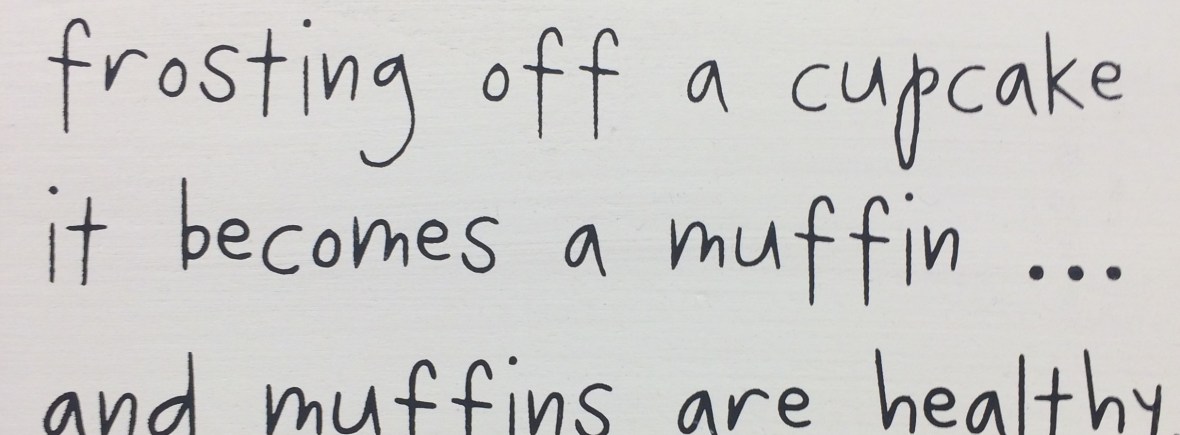 frosting off a cupcake
it becomes a muffin ...
and muffins are healthy.